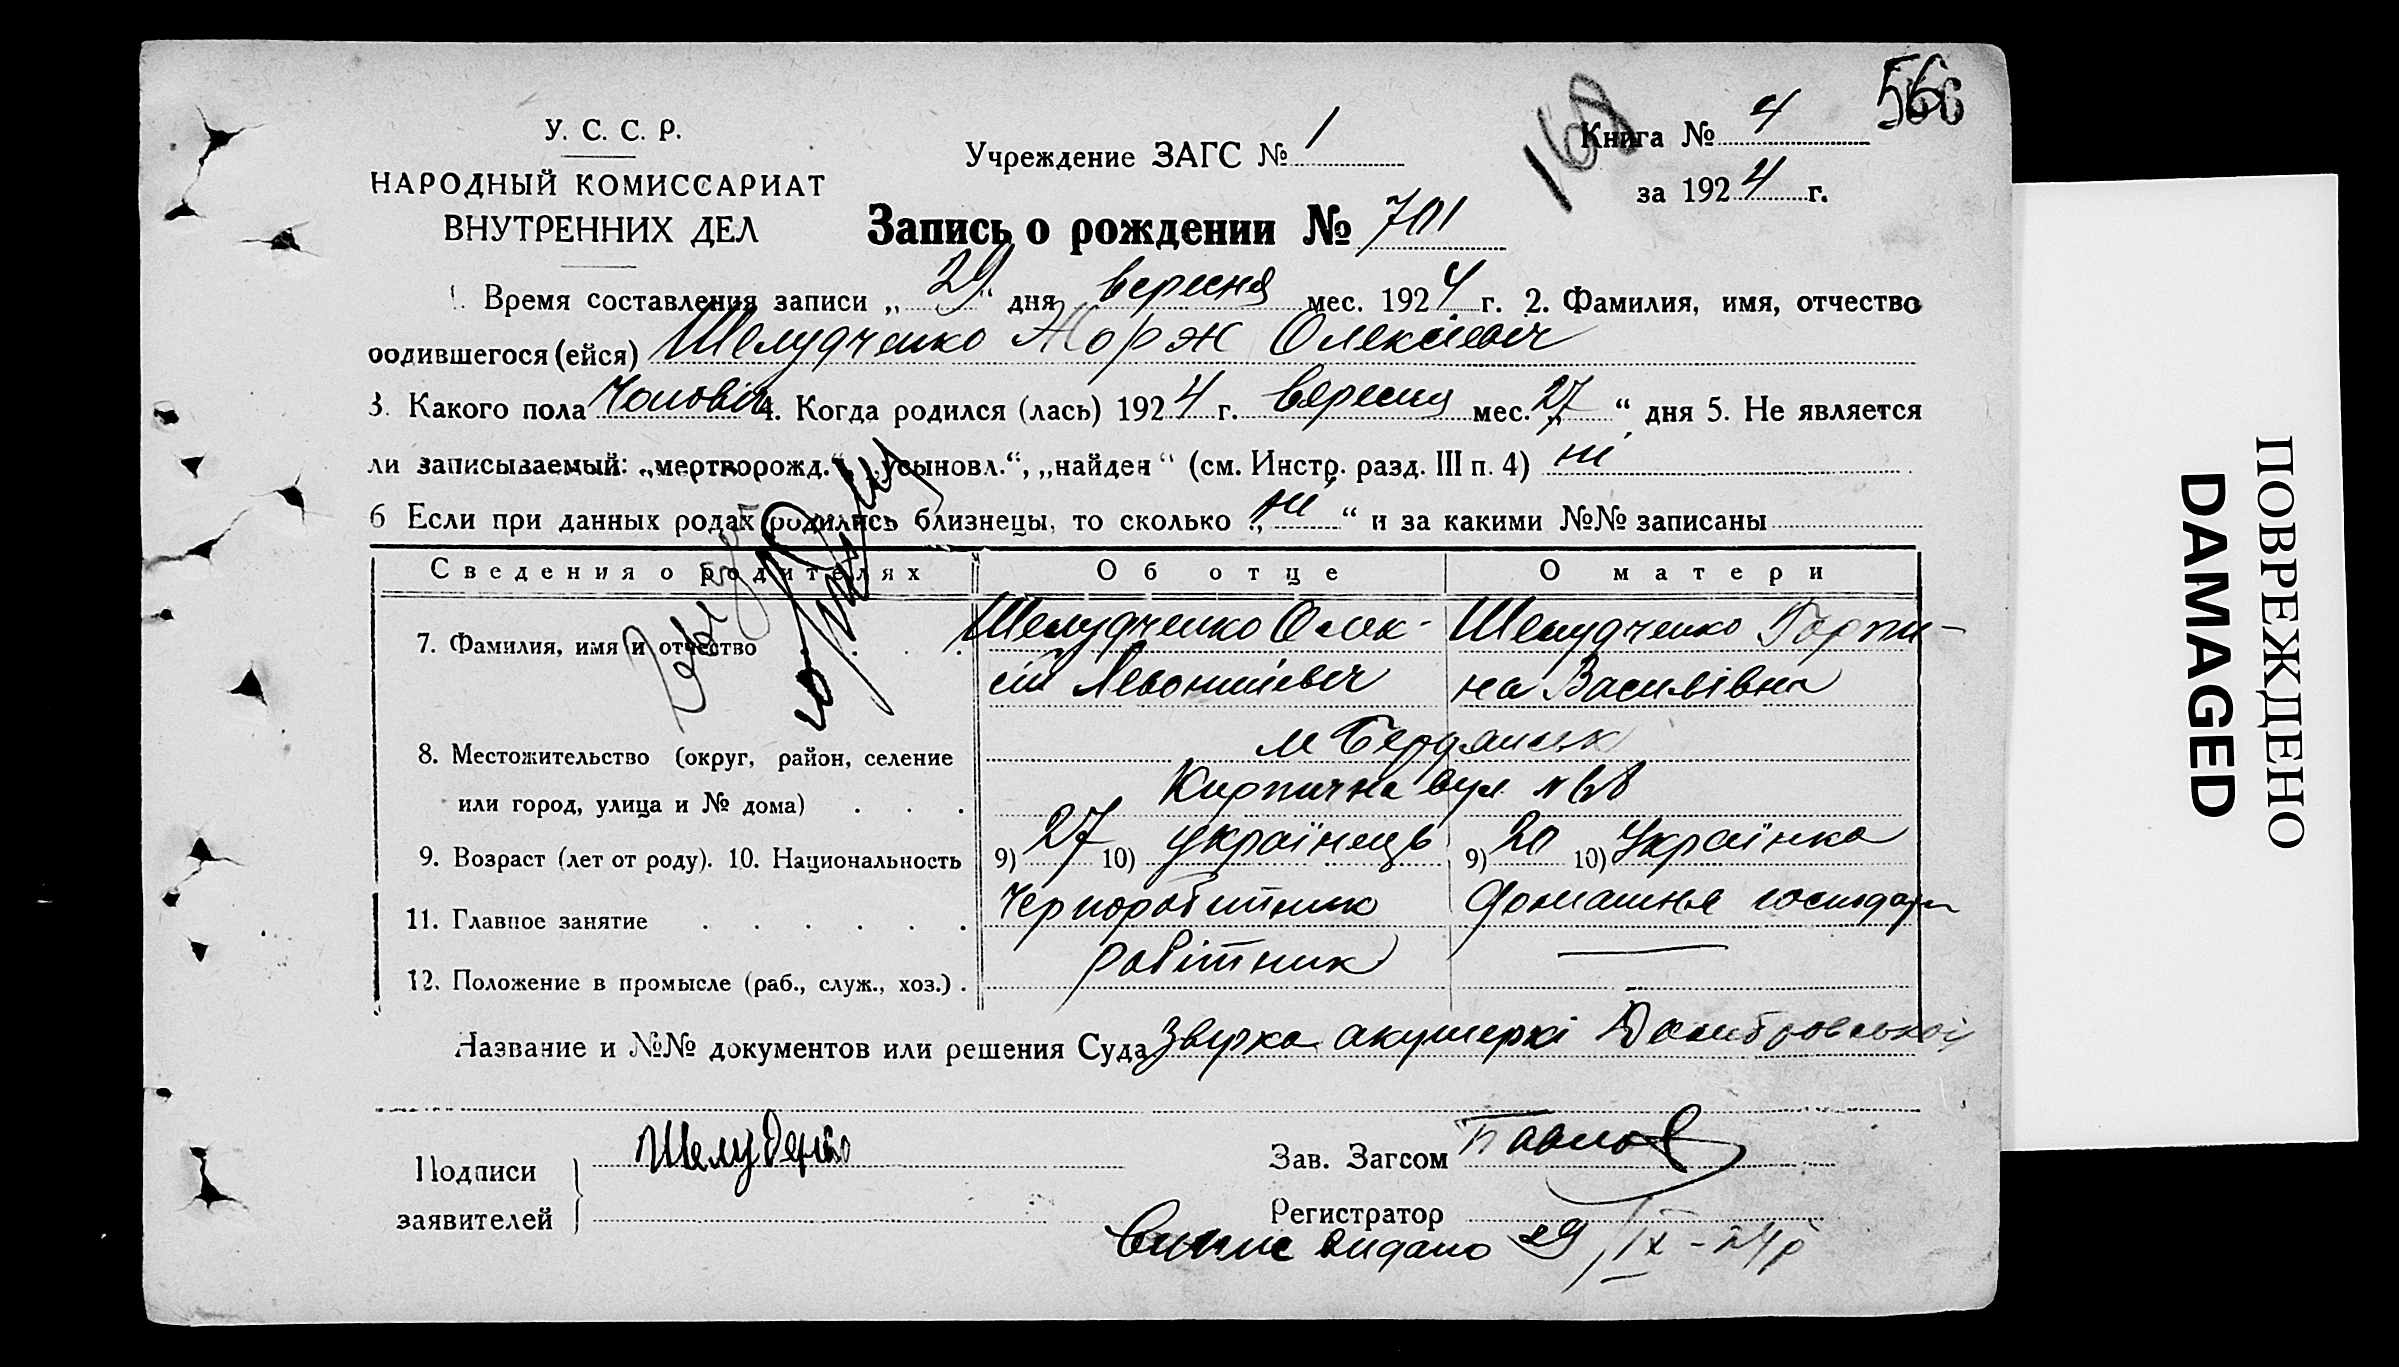 566
168
У. С. С. Р.
НАРОДНЫЙ КОМИССАРИАТ
ВНУТРЕННИХ ДЕЛ
Учреждение ЗАГС № 1
Книга № 4
за 1924 г.
Запись о рождении № 701
1. Время составления записи „29“ дня вересня мес. 1924 г. 2. Фамилия, имя, отчество
родившегося (ейся) Шелудченко Жорж Олексіевич
3. Какого пола Чоловіч 4. Когда родился (лась) 1924 г. вересня мес. „27“ дня 5. Не является
ли записываемый: „мертворожд.“, „усыновл.“, „найден“ (см. Инстр. разд. III п. 4) ні
6 Если при данных родах родились близнецы, то сколько „ні“ и за какими №№ записаны
Сведения о родителях Об отце О матери
7. Фамилия, имя и отчество . . . Шелудченко Олек- Шелудченко Горпи-
сій Левонтіевич на Василівна
8. Местожительство (округ, район, селение м Бердянськ
или город, улица и № дома) . . . Кирпична вул. №
9. Возраст (лет от роду). 10. Национальность 9) 27 10) українець 9) 20 10) Українка
11. Главное занятие . . . . . . Чернороботник Домашня господар
12. Положение в промысле (раб., служ., хоз.) . робітник —
Название и №№ документов или решения Суда акушеркі Домбровської
Подписи
заявителей
Шелуденко
Зав. Загсом Павлов
Регистратор
Випис видано 29/IX-24р
ПОВРЕЖДЕНО
DAMAGED